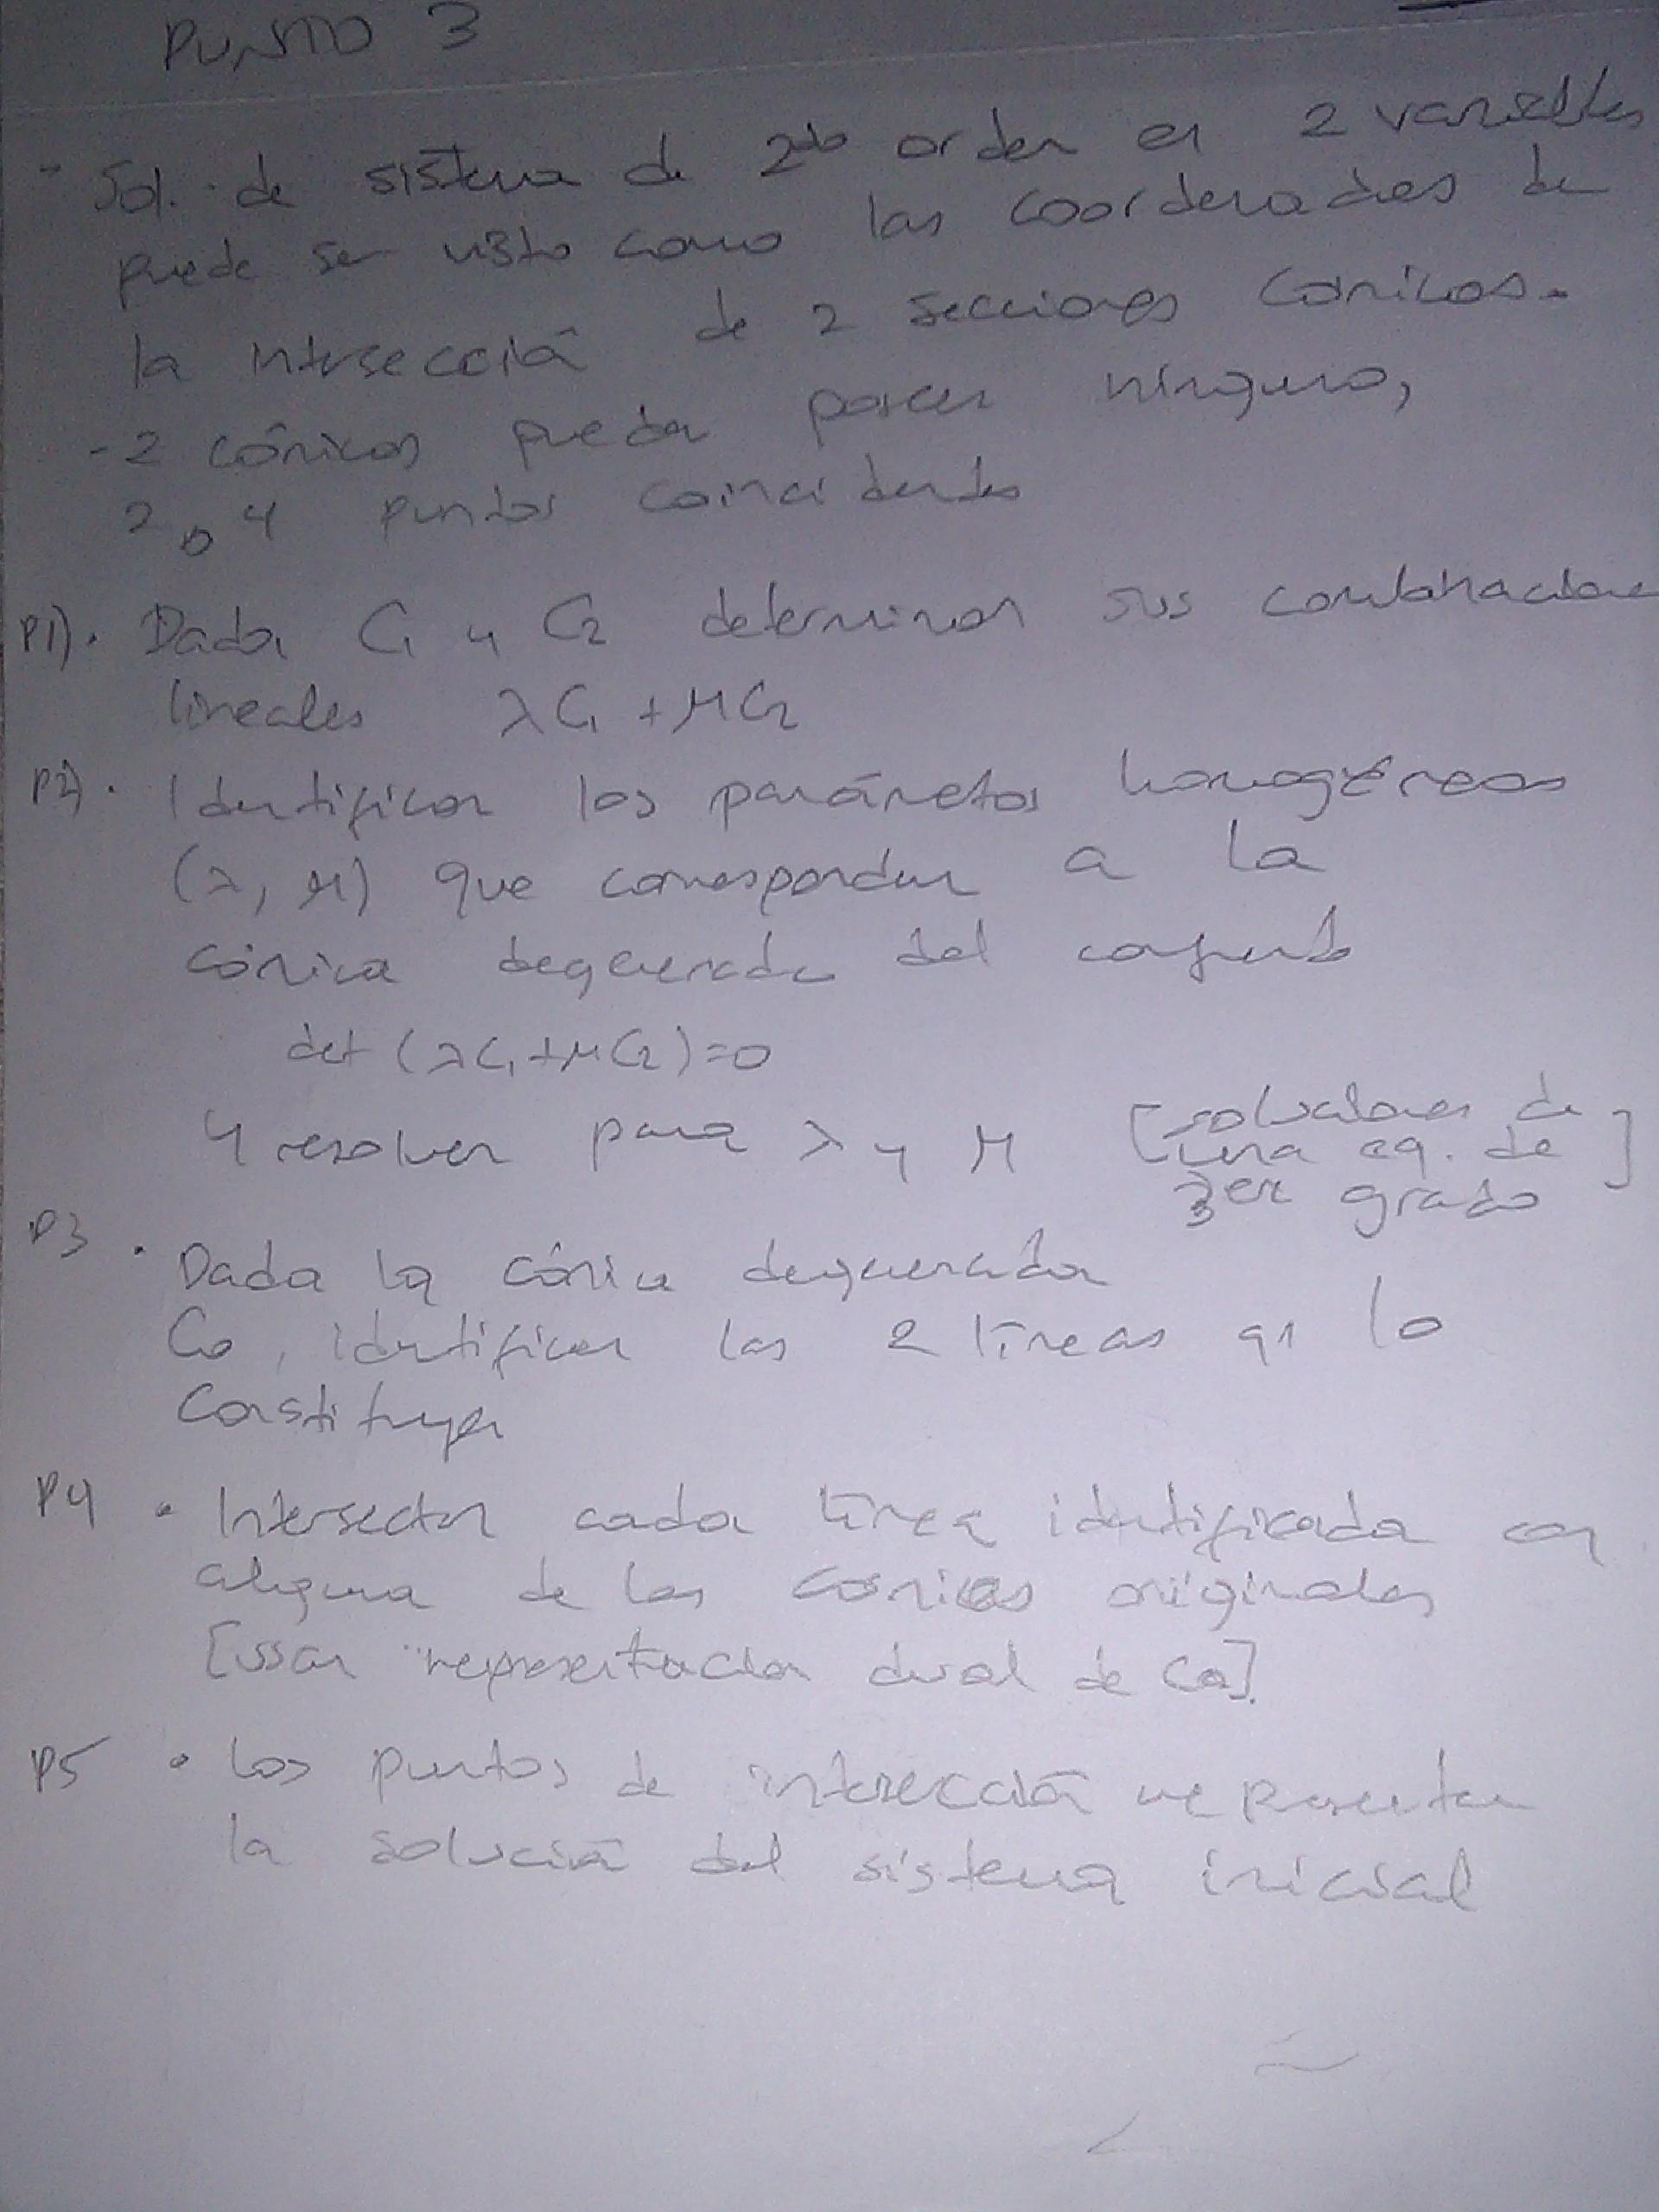 PUNTO 3
- Sol. de sistema de 2do orden en 2 variables
puede ser visto como las coordenadas de
la intersección de 2 secciones cónicas.
- 2 cónicas pueden poseer ninguno,
2 o 4 puntos coincidentes
P1). Dada C1 y C2 determinar sus combinaciones
lineales λC1 + μC2
P2). Identificar los parámetros homogéneos
(λ, μ) que corresponden a la
cónica degenerada del conjunto
det (λC1+μC2)=0
y resolver para λ y μ [soluciones de
una eq. de]
3er grado
P3 • Dada la cónica degenerada
Co, identificar las 2 líneas qn lo
constituyen
P4 • Intersectar cada línea identificada con
alguna de las cónicas originales
[usar representación dual de Co].
P5 • Los puntos de intersección representan
la solución del sistema inicial